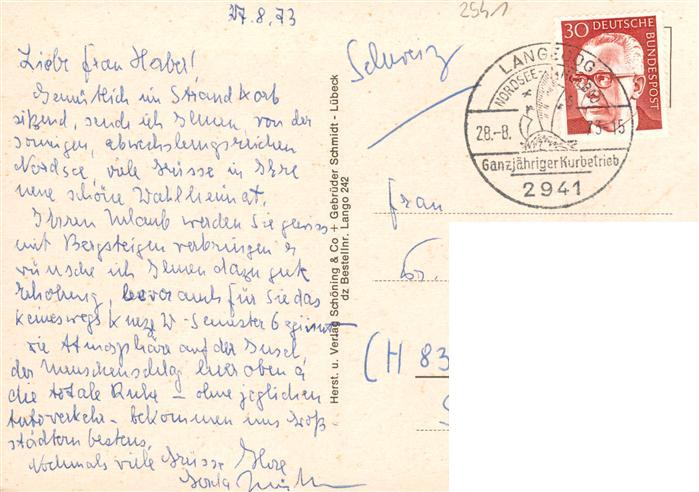 27.8.73
2541
Liebe Frau Haber!
Gemütlich im Strandkorb
sitzend, sende ich Ihnen, von der
sonnigen, abwechslungsreichen
Nordsee, viele Grüsse in Ihre
neue schöne Wahlheimat.
Ihren Urlaub werden Sie gewiss
mit Bergsteigen verbringen &
wünsche ich Ihnen dazu gute
Erholung, bevor auch für Sie das
keineswegs kurze W-Semester beginnt
Die Atmosphäre auf der Insel,
der Menschenschlag hier oben &
die totale Ruhe - ohne jeglichen
Autoverkehr - bekommen uns Groß-
städtern bestens.
Nochmals viele Grüsse Ihre
Herst. u. Verlag Schöning & Co + Gebrüder Schmidt - Lübeck
dz Bestellnr. Lango 242
Schweiz
30 DEUTSCHE BUNDESPOST
LANGEOOG
NORDSEE
28.-8. 73-15
Ganzjähriger Kurbetrieb
2941
Frau
(H 83